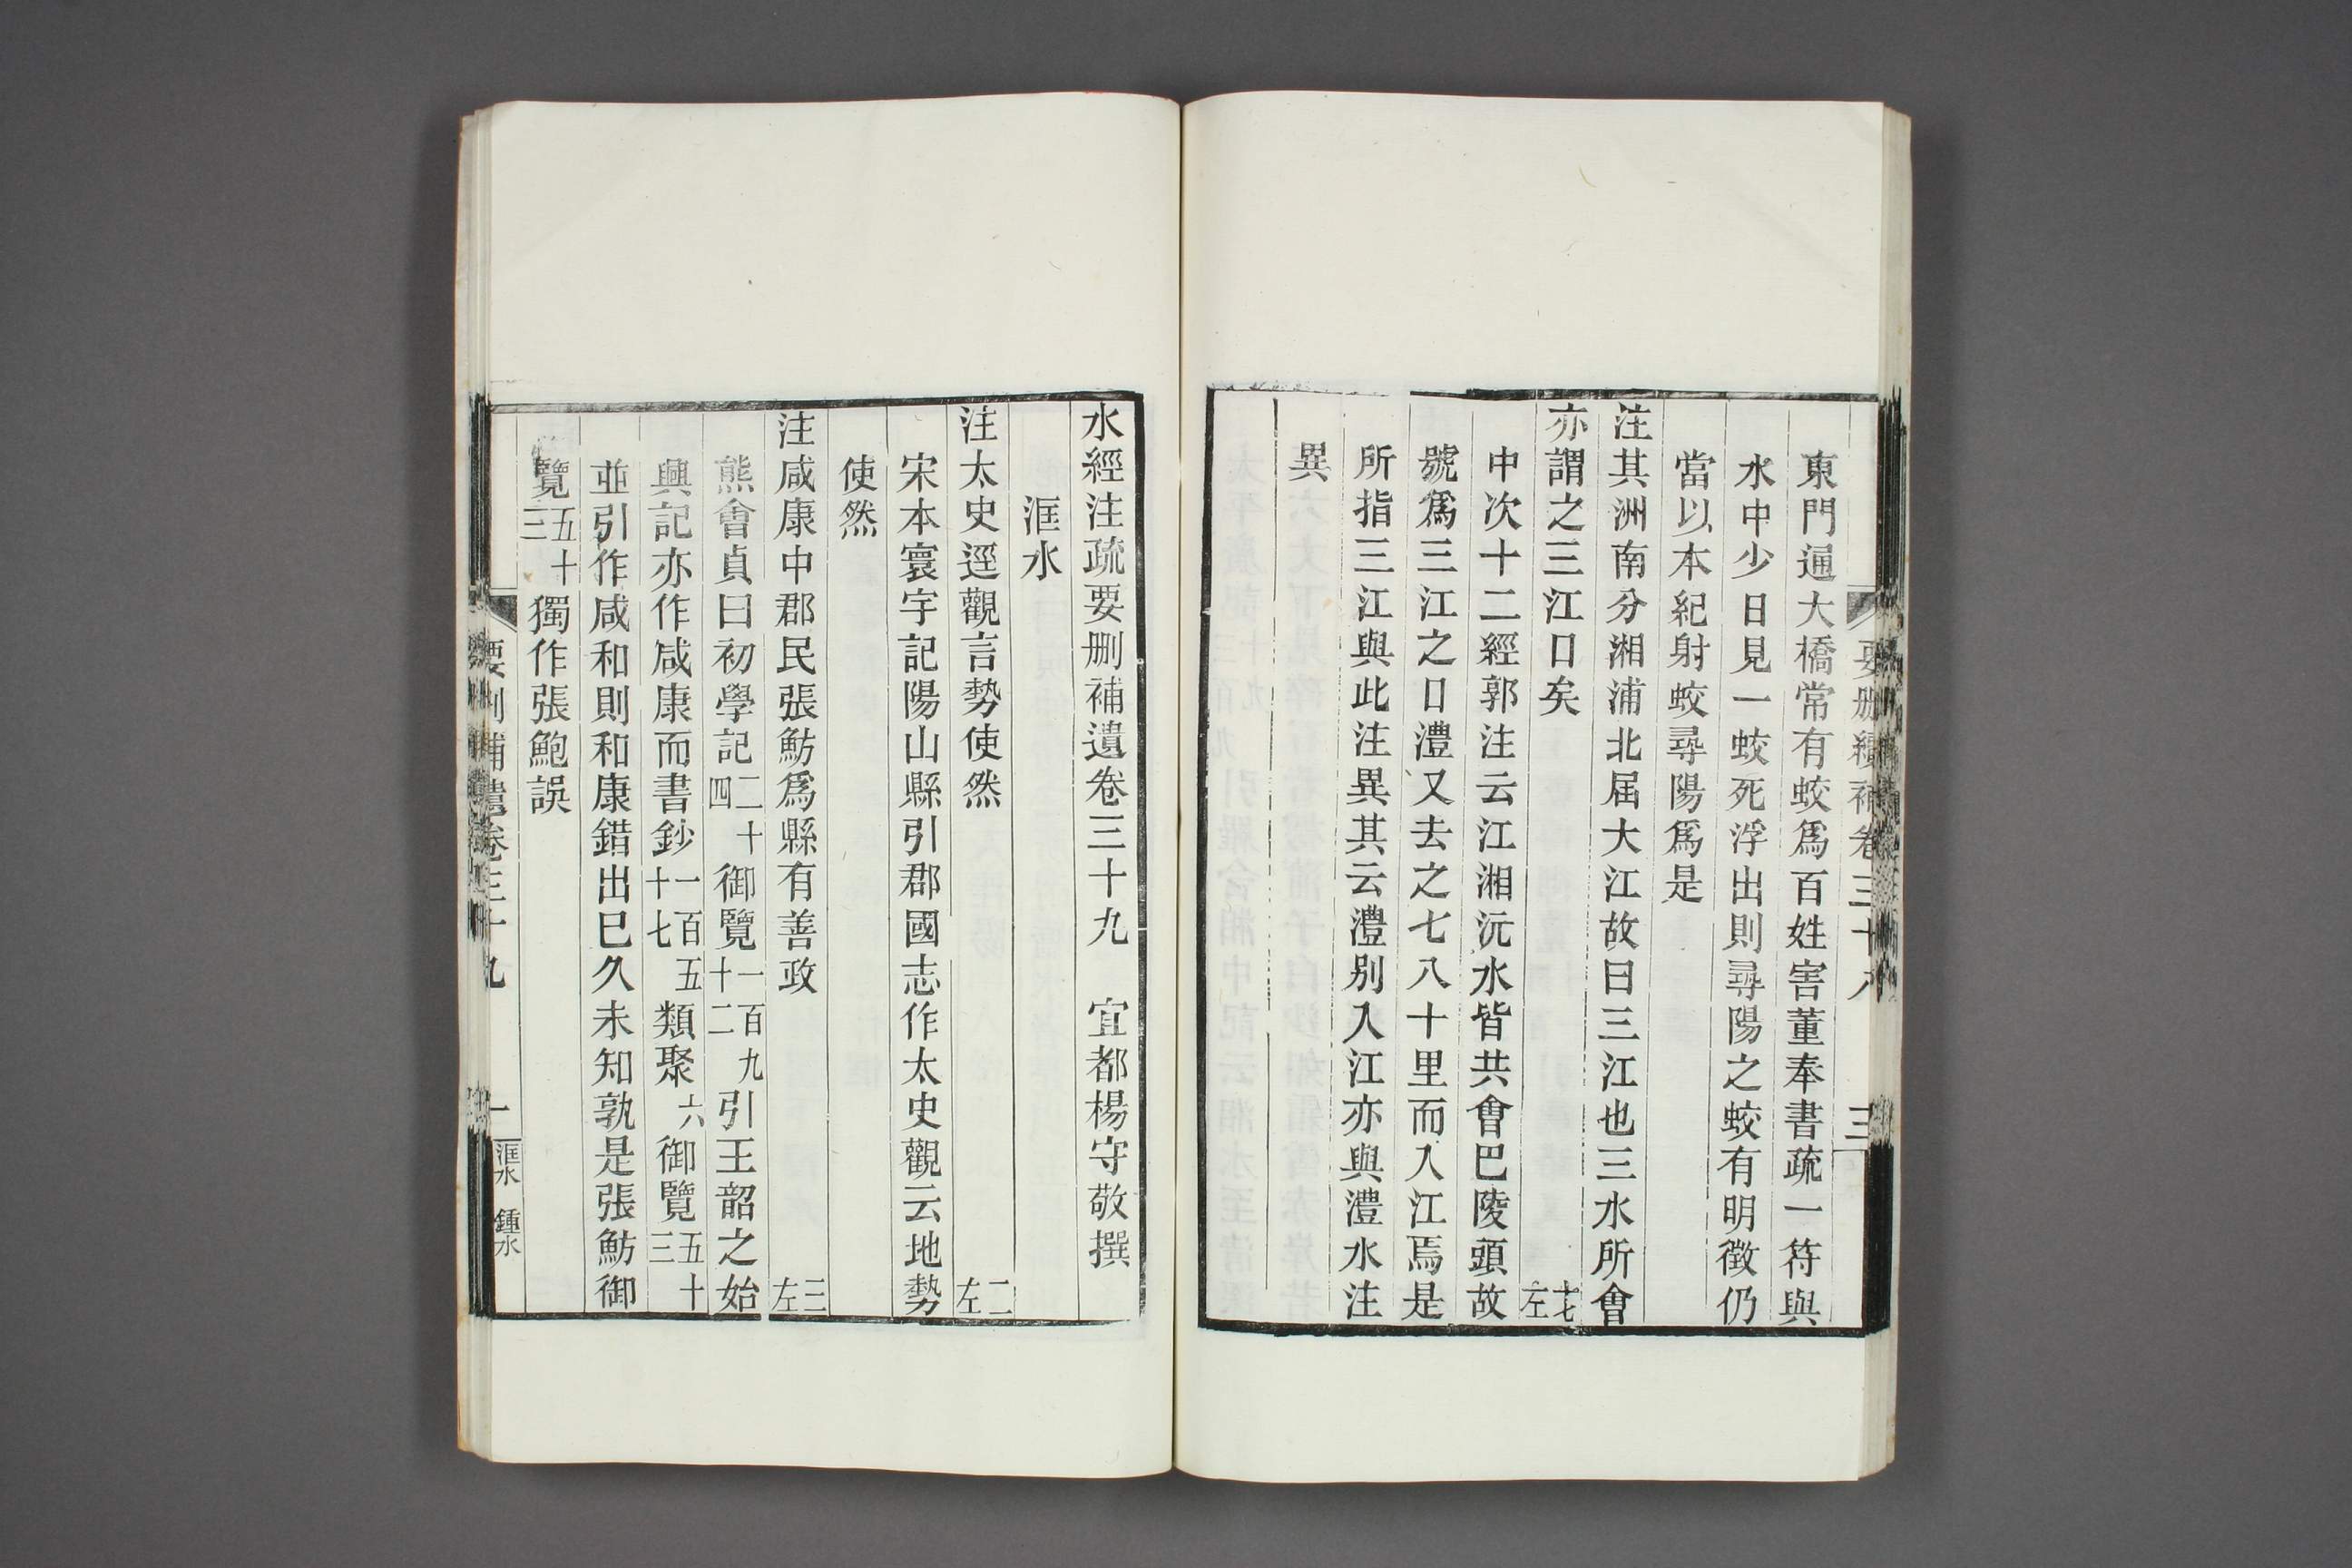 東門逼大橋常有蛟爲百姓害董奉書疏一符與
水中少日見一蛟死浮出則尋陽之蛟有明徵仍
當以本紀射蛟尋陽爲是
注其洲南分湘浦北届大江故曰三江也三水所會
亦謂之三江口矣 十七左
中次十二經郭注云江湘沅水皆共會巴陵頭故
號爲三江之口澧又去之七八十里而入江焉是
所指三江與此注異其云澧別入江亦與澧水注
異
要删續補卷三十八 三
水經注疏要删補遺卷三十九 宜都楊守敬撰
洭水
注太史逕觀言勢使然 二左
宋本寰宇記陽山縣引郡國志作太史觀云地勢
使然
注咸康中郡民張魴爲縣有善政 三左
熊會貞曰初學記二十四御覽一百九十二引王韶之始
興記亦作咸康而書鈔一百五十七類聚六御覽五十三
並引作咸和則和康錯出已久未知孰是張魴御
覽五十三獨作張鮑誤
要删補遺卷三十九 一 洭水 鍾水